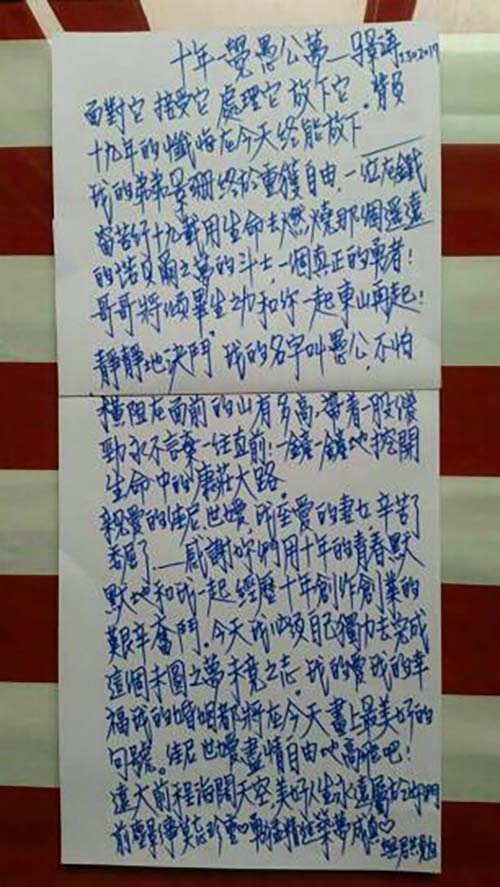 十年一覺愚公夢 5.30.2017
面對它 接受它 處理它 放下它。背負
十九年的懺悔在今天終能放下
我的弟弟景珊終於重獲自由,一位在鐵
窗苦行十九載用生命去燃燒那個遙遠
的諾貝爾之夢的斗士,一個真正的勇者!
哥哥將傾畢生之力和你一起東山再起!
靜靜地決鬥,我的名字叫愚公,不怕
橫阻在面前的山有多高,帶着一股傻
勁永不言棄一往直前!一鏟一鏟地挖開
生命中的康莊大路。
親愛的佳尼也嬡,我至愛的妻女,辛苦了
委屈了——感謝妳們用十年的青春默
默地和我一起經歷十年創作創業的
艱辛奮鬥,今天我必須自己獨力去完成
這個未圓之夢未竟之志,我的愛我的幸
福我的婚姻都將在今天畫上最美好的
句號。佳尼也嬡盡情自由地高飛吧!
遠大前程海闊天空,美好人生永遠屬於妳們
前 莫忘珍重♡勇猛精進築夢成真♡